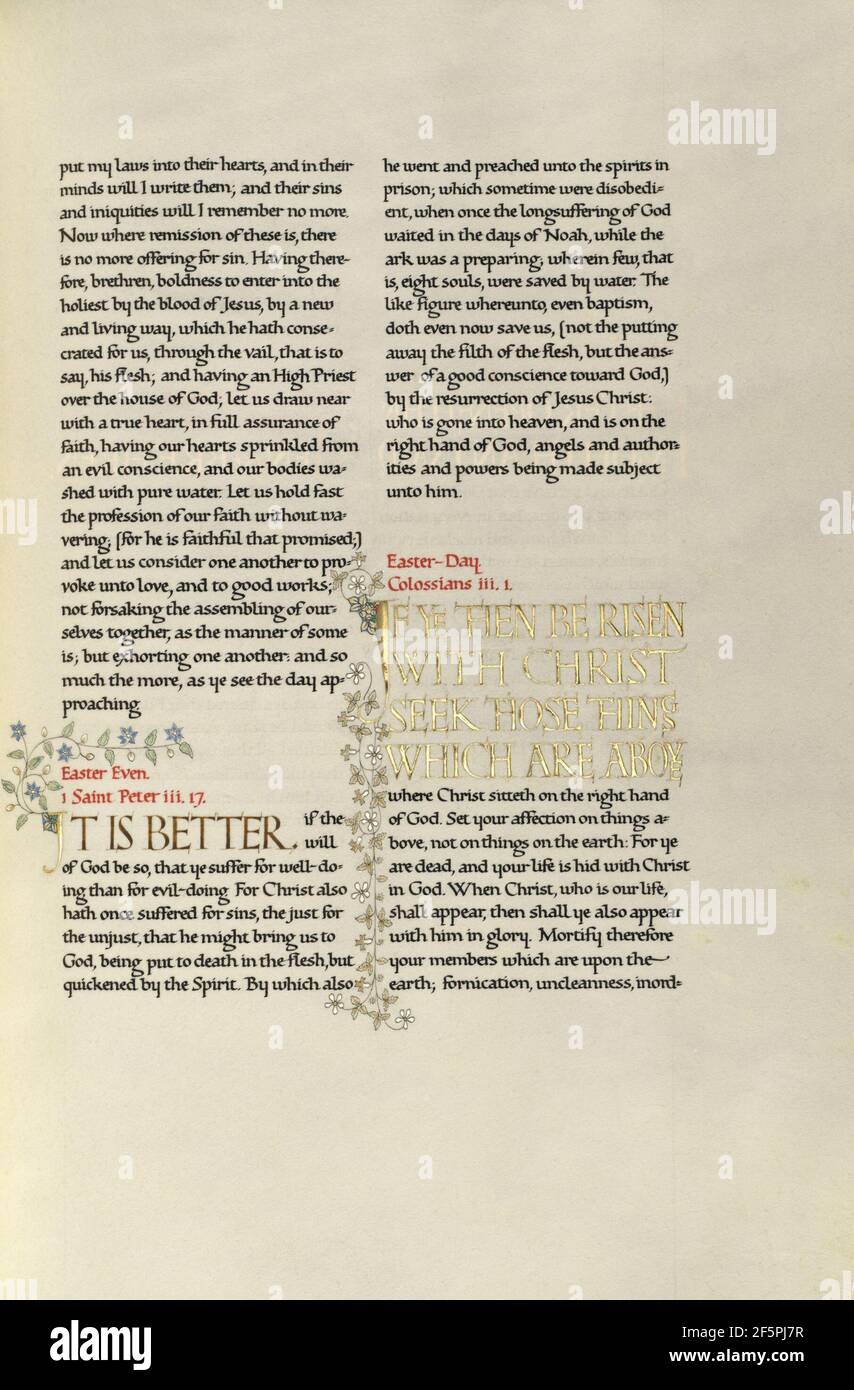 put my laws into their hearts, and in their
minds will I write them; and their sins
and iniquities will I remember no more.
Now where remission of these is, there
is no more offering for sin. Having there-
fore, brethren, boldness to enter into the
holiest by the blood of Jesus, by a new
and living way, which he hath conse-
crated for us, through the vail, that is to
say, his flesh; and having an High Priest
over the house of God; let us draw near
with a true heart, in full assurance of
faith, having our hearts sprinkled from
an evil conscience, and our bodies wa-
shed with pure water. Let us hold fast
the profession of our faith without wa-
vering; (for he is faithful that promised;)
and let us consider one another to pro-
voke unto love, and to good works;
not forsaking the assembling of our-
selves together, as the manner of some
is; but exhorting one another: and so
much the more, as ye see the day ap-
proaching
Easter Even.
1 Saint Peter iii. 17.
IT IS BETTER, if the
will
of God be so, that ye suffer for well-do-
ing than for evil-doing. For Christ also
hath once suffered for sins, the just for
the unjust, that he might bring us to
God, being put to death in the flesh, but
quickened by the Spirit. By which also
he went and preached unto the spirits in
prison; which sometime were disobedi-
ent, when once the longsuffering of God
waited in the days of Noah, while the
ark was a preparing; wherein few, that
is, eight souls, were saved by water. The
like figure whereunto, even baptism,
doth even now save us, (not the putting
away the filth of the flesh, but the ans-
wer of a good conscience toward God,)
by the resurrection of Jesus Christ:
who is gone into heaven, and is on the
right hand of God, angels and author-
ities and powers being made subject
unto him.
Easter-Day.
Colossians iii. 1.
IF YE THEN BE RISEN
WITH CHRIST
SEEK THOSE THINGS
WHICH ARE ABOVE
where Christ sitteth on the right hand
of God. Set your affection on things a-
bove, not on things on the earth: For ye
are dead, and your life is hid with Christ
in God. When Christ, who is our life,
shall appear, then shall ye also appear
with him in glory. Mortify therefore
your members which are upon the
earth; fornication, uncleanness, inord-
alamy
Image ID: 2F5PJ7R
www.alamy.com